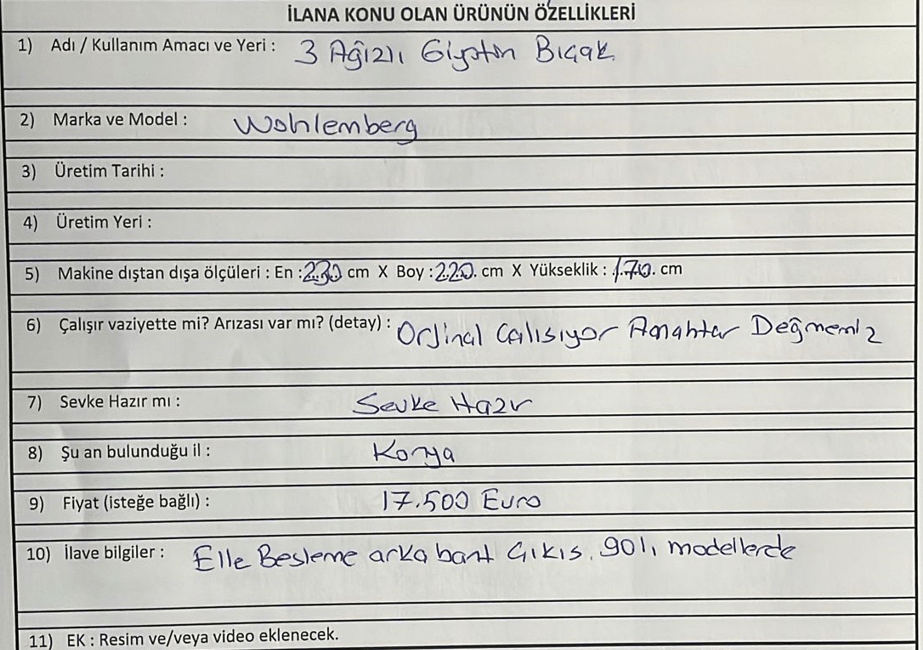 İLANA KONU OLAN ÜRÜNÜN ÖZELLİKLERİ
1) Adı / Kullanım Amacı ve Yeri : 3 Ağızlı Giyotin Bıçak
2) Marka ve Model : Wohlemberg
3) Üretim Tarihi :
4) Üretim Yeri :
5) Makine dıştan dışa ölçüleri : En :230 cm X Boy :220. cm X Yükseklik : 1.70. cm
6) Çalışır vaziyette mi? Arızası var mı? (detay) : Orjinal Çalısıyor Anahtar Değmemiz
7) Sevke Hazır mı : Sevke Hazır
8) Şu an bulunduğu il : Konya
9) Fiyat (isteğe bağlı) : 17.500 Euro
10) İlave bilgiler : Elle Besleme arka bant Çıkıs. 90lı modellerde
11) EK : Resim ve/veya video eklenecek.